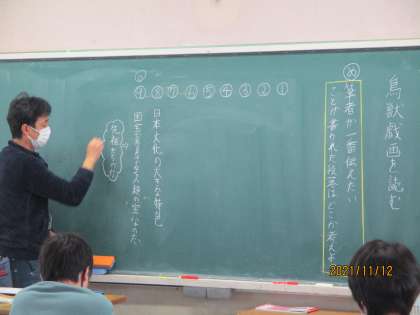 鳥獣戯画を読む
筆者が一番伝えたい
ことが書かれた段落はどこか考えよう
①②③④⑤⑥⑦⑧⑨
日本文化の大きな特色
国宝であるだけでなく人類の宝なのだ。
2021/11/12